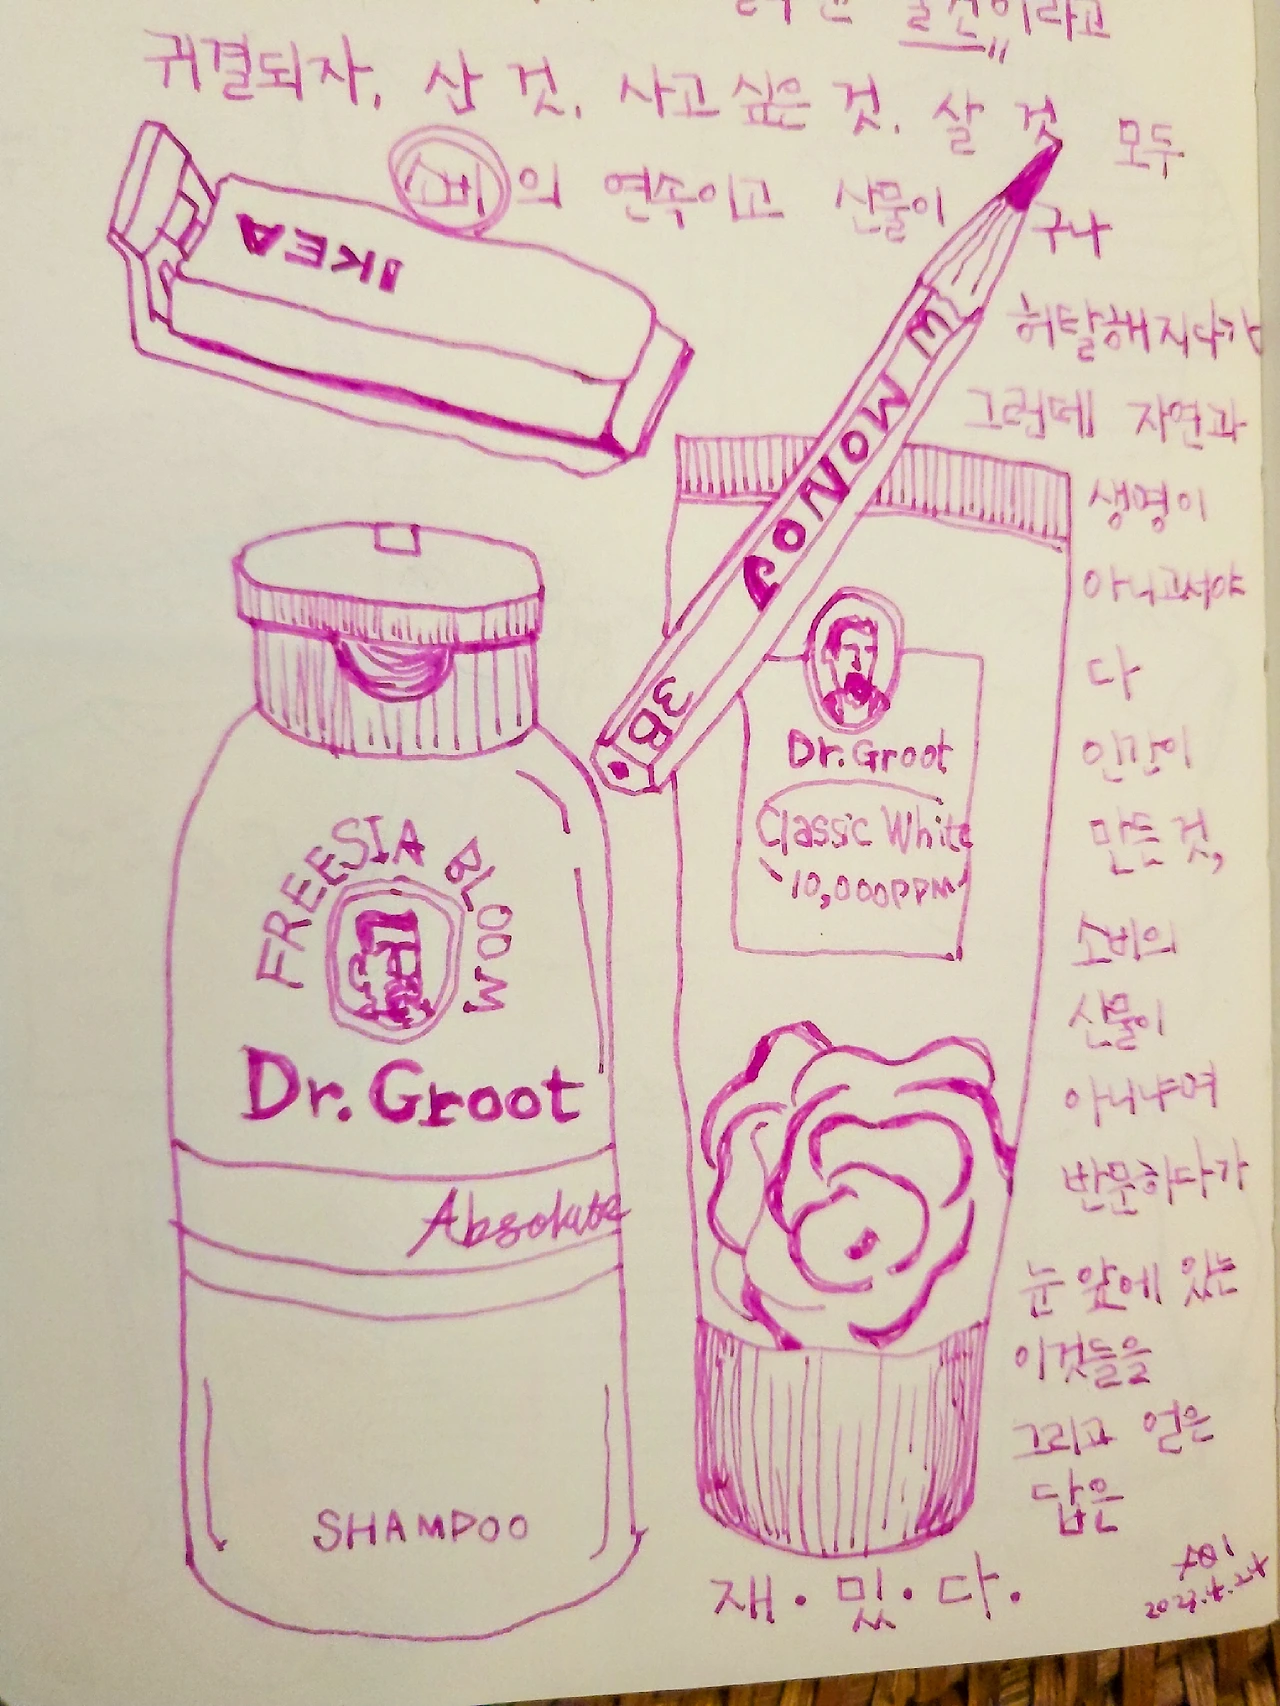 물건이라고
귀결되자, 산 것, 사고싶은 것, 살 것 모두
소비의 연속이고 산물이구나
허탈해지다가
그런데 자연과
생명이
아니고서야
다
인간이
만든 것,
소비의
산물이
아니냐며
반문하다가
눈 앞에 있는
이것들을
그리고 얻은
답은
재·밌·다.
IKEA
MONO J
3B
FREESIA BLOOM
Dr. Groot
Absolute
SHAMPOO
Dr. Groot
Classic White
10,000PPM
2023.4.24